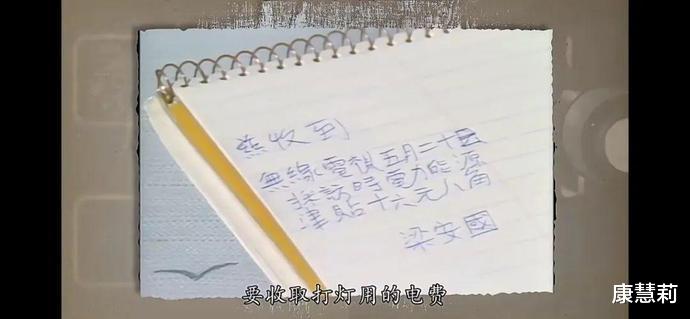 茲收到
無線電視五月二十日
採訪時電力能源
津貼十六元八角
梁安國
要收取打灯用的电费
康慧莉